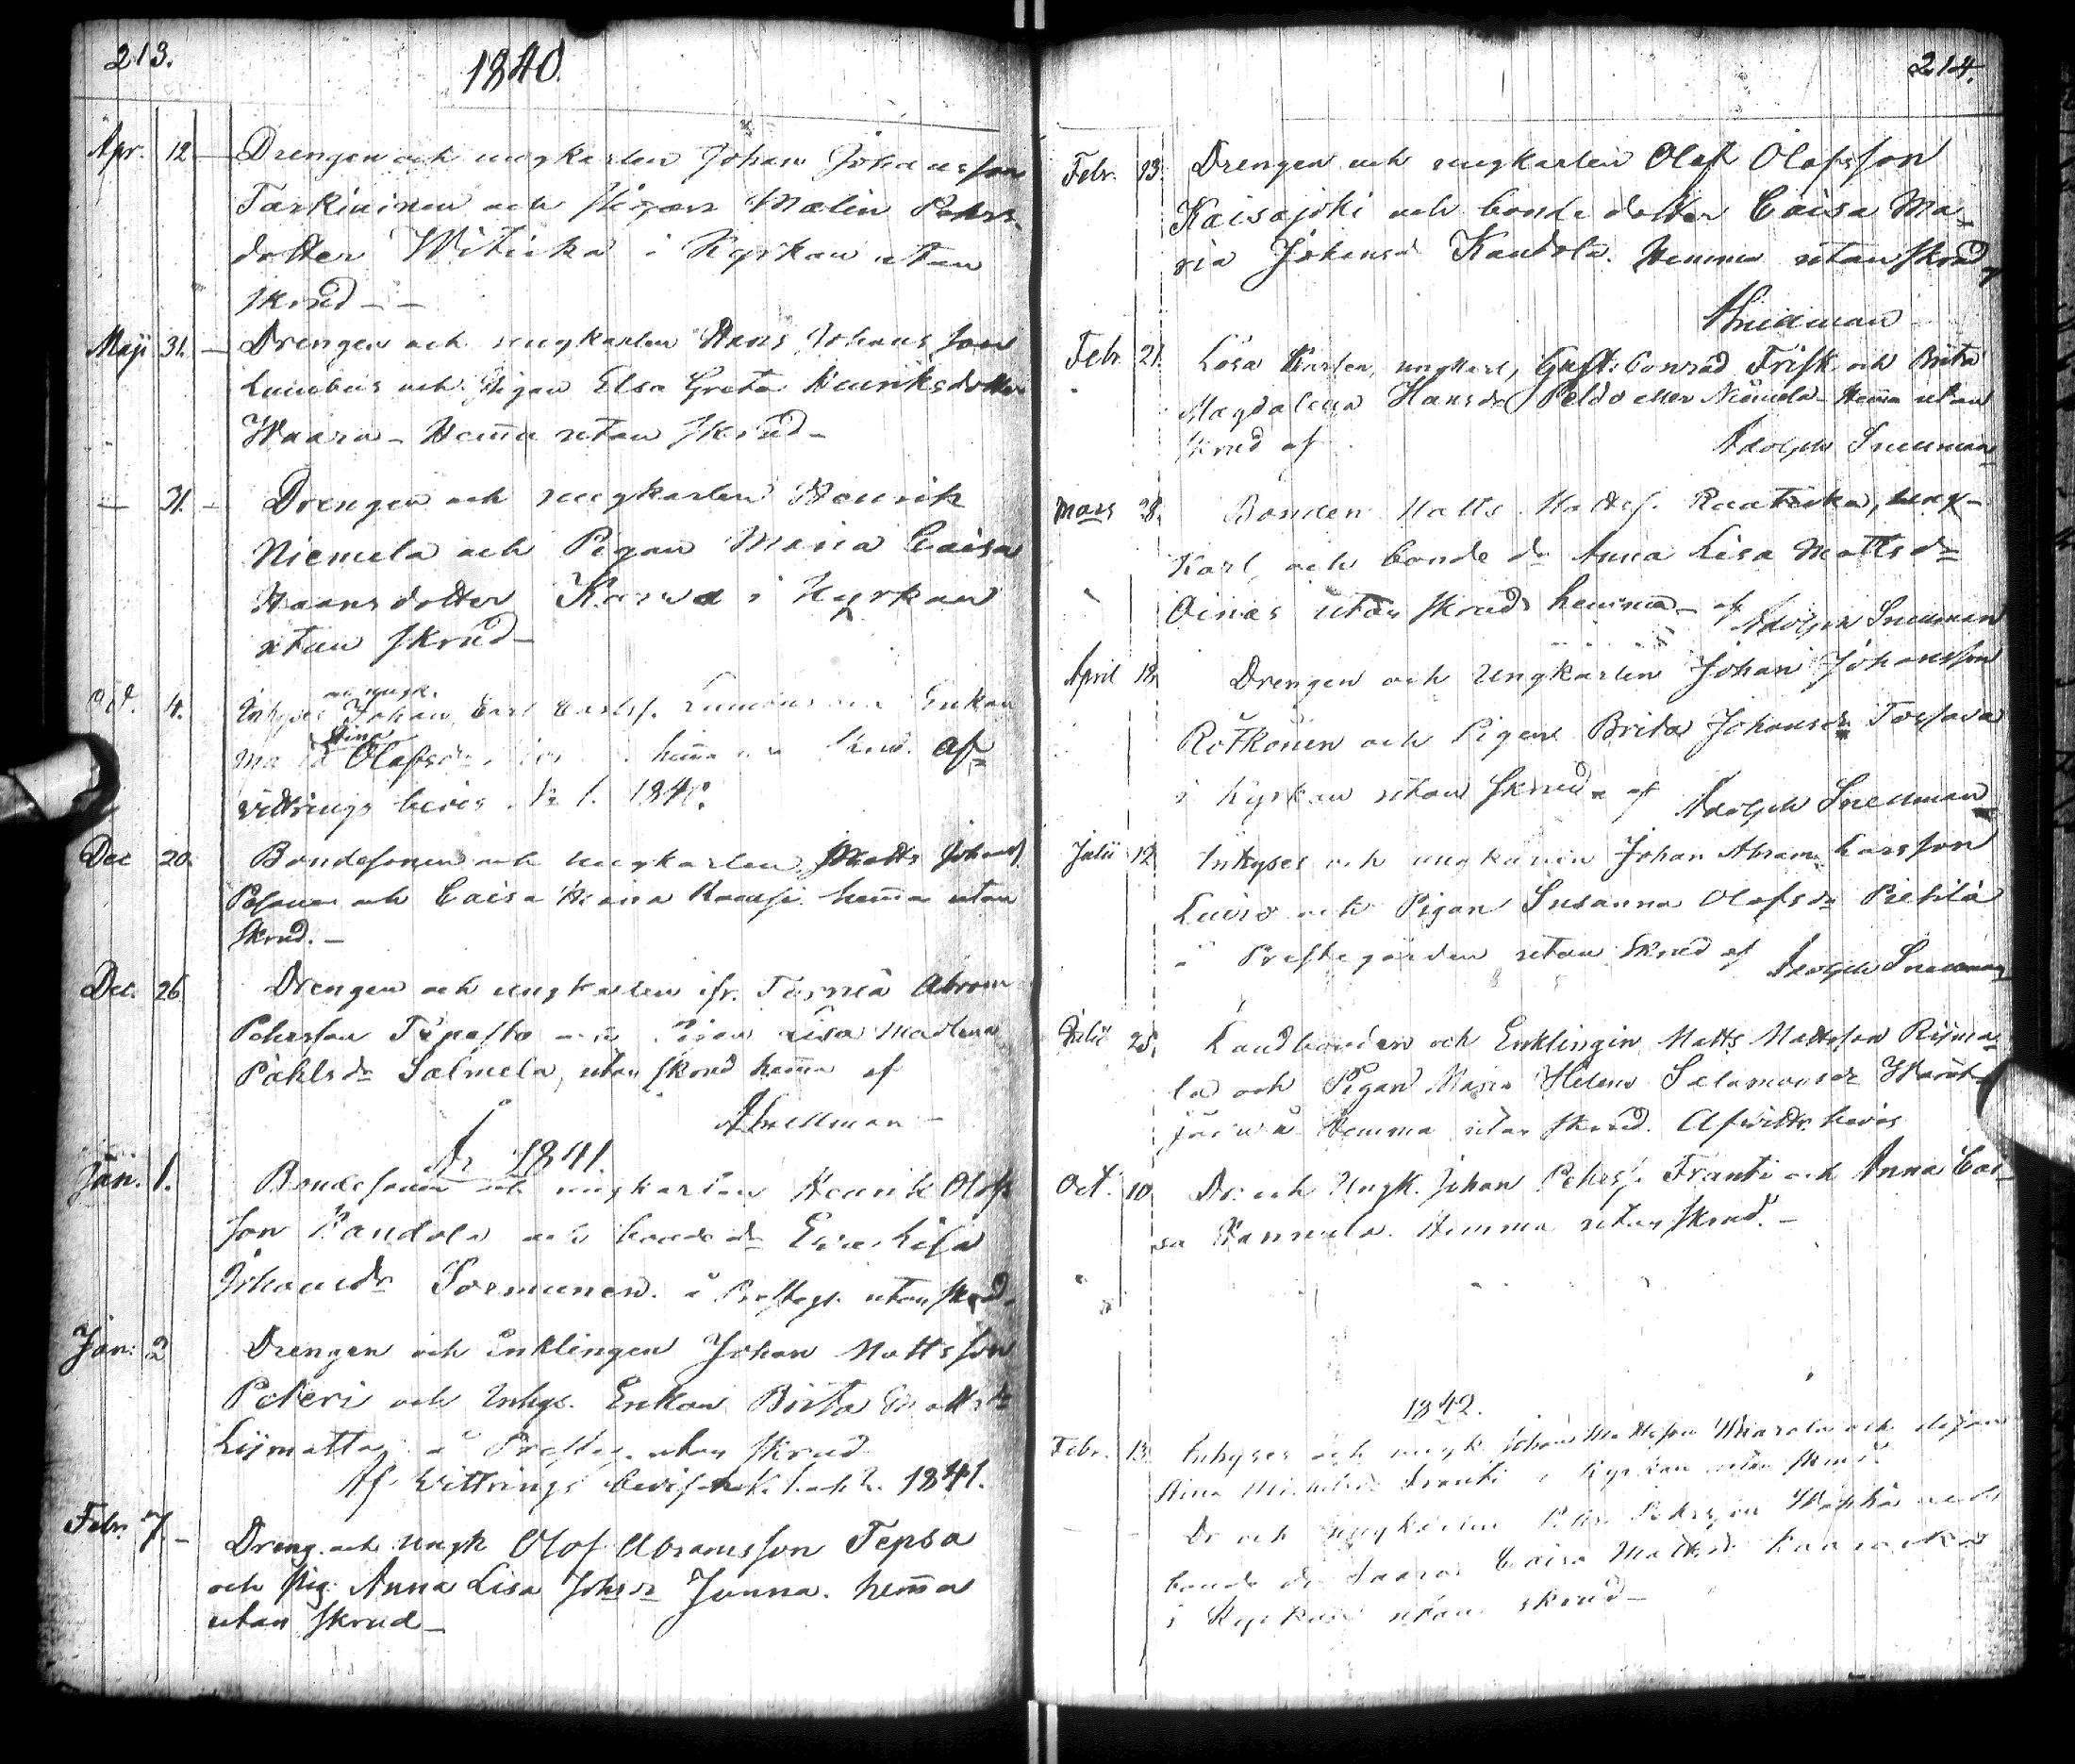 213.
1840
Apr. 12 Drengen och ungkarlen Johan Johansson
Tarkiainen och Pigan Malin Pehrs-
dotter Witicka i Kyrkan utan
skrud
Maji 31. Drengen och ungkarlen Hans Johansson
och Pigan Elsa Greta Henriksdotter
Waara - Hem̄a utan skrud -
31. Drengen och ungkarlen Henrik
Niemela och Pigan Maria Caisa
Hansdotter Karwa i Kyrkan
utan skrud -
Oct. 4. Inhyses Johan Carl Enkan
Stina
Olofsdr hem̄a Af-
vittrings bevis 1. 1840.
Dec 20. Bondesonen och ungkarlen Matts Johans.
och Caisa hem̄a utan
skrud. -
Dec. 26 Drengen och ungkarlen ifr. Torneå Abram
Pehrsson och Pigan Lisa Madlena
Påhlsdr Salmela, utan skrud hem̄a af
ASnellman -
År 1841.
Jan. 1. Bondesonen och ungkarlen Henrik Olofs
son Kandola och bonde dr Eva Lisa
Johansdr Sormunen. å Prestg. utan skrud.
Jan: 2 Drengen och Enklingen Johan Mattsson
Peteri och Inhys. Enkan Brita Mattsdr
Liimatta å Presteg. utan skrud
Af Vittrings bevis 1. och 2. 1841.
Febr. 7. - Dreng. och Ungk Olof Abramsson Tepsa
och Pig. Anna Lisa Johsdr Junna. hem̄a
utan skrud -
214.
Febr. 13. Drengen och ungkarlen Olof Olofsson
Kaisajoki och bonde dotter Caisa Ma-
ria Johansd Kandola. Hemma utan skrud
ASnellman
Febr. 21. Lösa Karlen, ungkarl, Gust. Conrad Frisk och Brita
Magdalena Hansdr Peldo eller Niemela - Hem̄a utan
skrud af Adolph Snellman
Mars 28. Bonden Matts Matts. Raaticka, ung-
Karl, och bonde dr Anna Lisa Mattsdr
Oinas utan skrud hemma - af Adolph Snellman
April 18. Drengen och Ungkarlen Johan Johansson
Rötkönen och Pigan Brita Johansdr Torfava
i Kyrkan utan skrud. af Adolph Snellman
Julii 12 Inhyses och ungkarlen Johan Abram Larsson
och Pigan Susanna Olofsdr Pietilä
å Prestegården utan skrud af Adolph Snellman
Julii 25. Landbonden och Enklingen Matts Mattsson
la och Pigan Maria Helena Salamonsdr
Hemma utan skrud. Afvittr. bevis
Oct. 10 Dr. och Ungk. Johan Pehrs. Franti och Anna Cai-
sa Hannula. Hemma utan skrud. -
1842.
Febr. 13. Inhyses och ungk. Johan Mattsson och
Stina Franti i Kyrkan utan skrud
Dr och ungkarlen Pehrsson och
bonde dr Caisa Mattsd
i Kyrkan utan skrud -